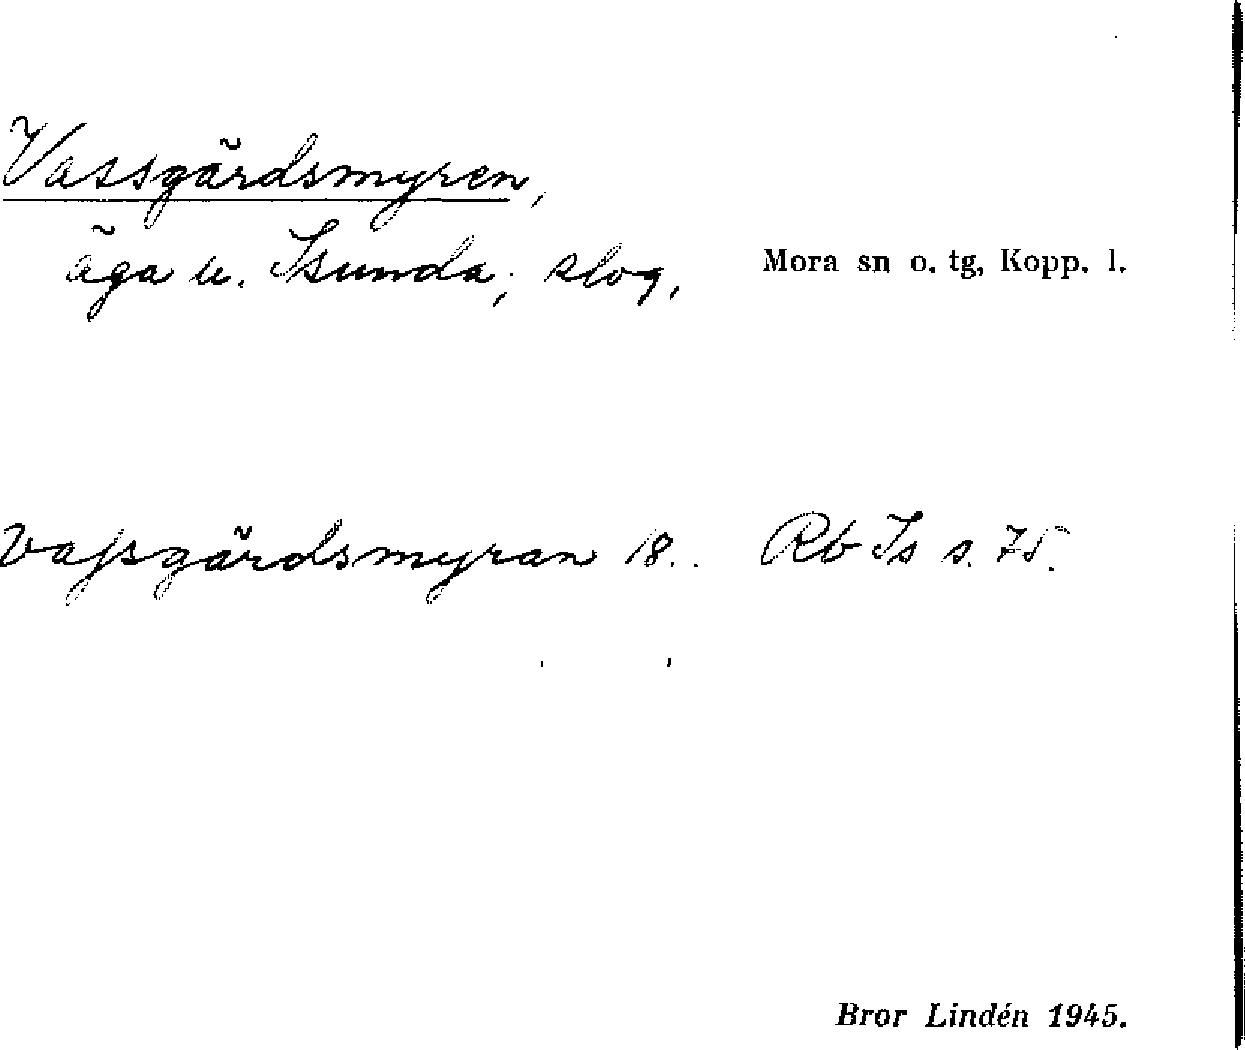 Vassgärdsmyren,
äga u. Isunda; slog,
Mora sn o. tg, Kopp. l.
Vassgärdsmyran 18.. Rb Is s. 75.
Bror Lindén 1945.